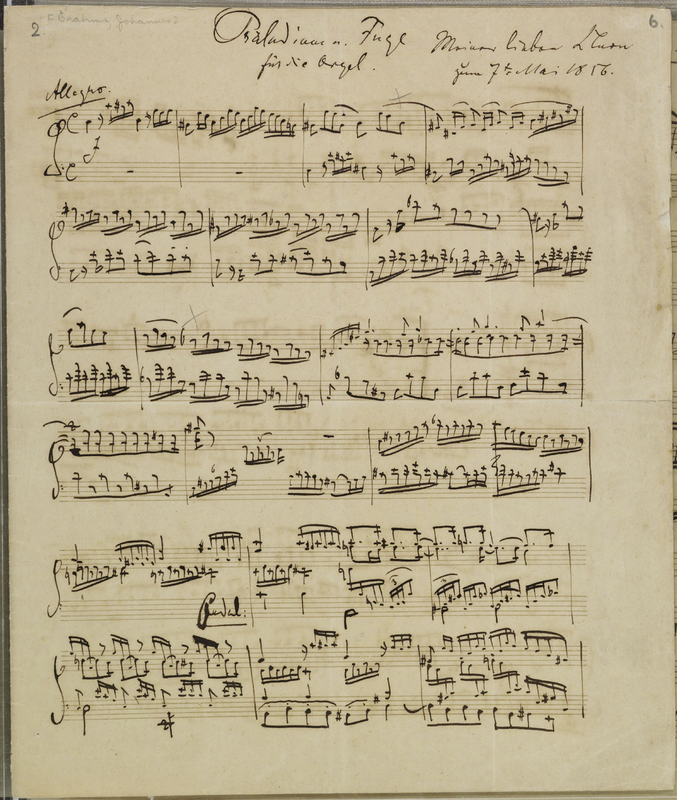 2. [Brahms, Johannes] 6.
Präludium u. Fuge
für die Orgel.
Meiner lieben Clara
zum 7ten Mai 1856.
Allegro.
Pedal: